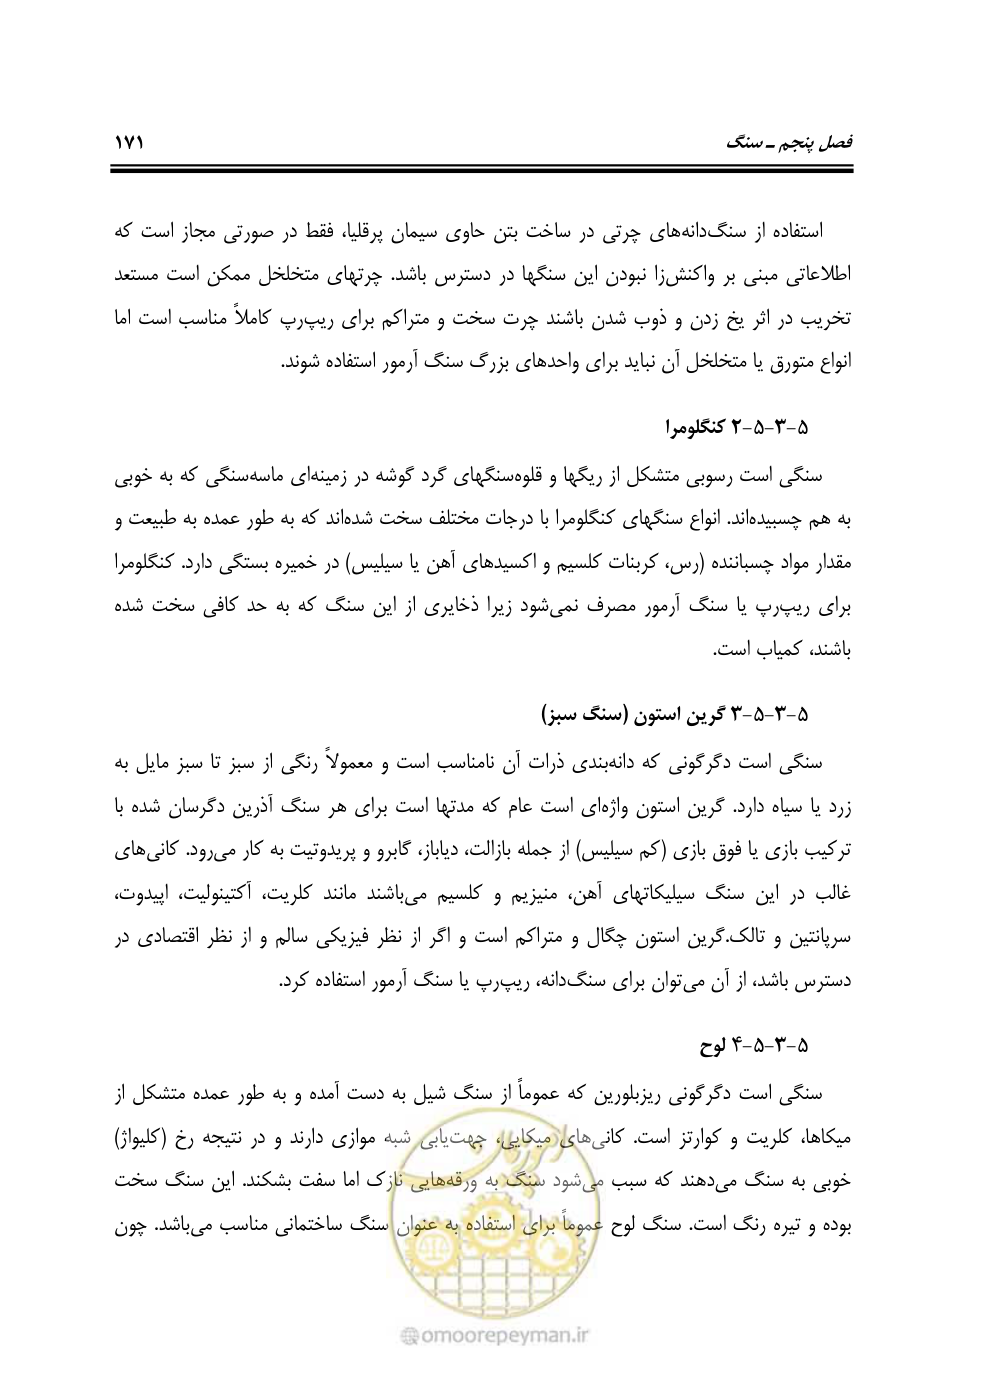 فصل پنجم ـ سنگ ۱۷۱
استفاده از سنگ‌دانه‌های چرتی در ساخت بتن حاوی سیمان پرقلیا، فقط در صورتی مجاز است که
اطلاعاتی مبنی بر واکنش‌زا نبودن این سنگها در دسترس باشد. چرتهای متخلخل ممکن است مستعد
تخریب در اثر یخ زدن و ذوب شدن باشند چرت سخت و متراکم برای ریپ‌رپ کاملاً مناسب است اما
انواع متورق یا متخلخل آن نباید برای واحدهای بزرگ سنگ آرمور استفاده شوند.
۵-۳-۵-۲ کنگلومرا
سنگی است رسوبی متشکل از ریگها و قلوه‌سنگهای گرد گوشه در زمینه‌ای ماسه‌سنگی که به خوبی
به هم چسبیده‌اند. انواع سنگهای کنگلومرا با درجات مختلف سخت شده‌اند که به طور عمده به طبیعت و
مقدار مواد چسباننده (رس، کربنات کلسیم و اکسیدهای آهن یا سیلیس) در خمیره بستگی دارد. کنگلومرا
برای ریپ‌رپ یا سنگ آرمور مصرف نمی‌شود زیرا ذخایری از این سنگ که به حد کافی سخت شده
باشند، کمیاب است.
۵-۳-۵-۳ گرین استون (سنگ سبز)
سنگی است دگرگونی که دانه‌بندی ذرات آن نامناسب است و معمولاً رنگی از سبز تا سبز مایل به
زرد یا سیاه دارد. گرین استون واژه‌ای است عام که مدتها است برای هر سنگ آذرین دگرسان شده با
ترکیب بازی یا فوق بازی (کم سیلیس) از جمله بازالت، دیاباز، گابرو و پریدوتیت به کار می‌رود. کانی‌های
غالب در این سنگ سیلیکاتهای آهن، منیزیم و کلسیم می‌باشند مانند کلریت، آکتینولیت، اپیدوت،
سرپانتین و تالک.گرین استون چگال و متراکم است و اگر از نظر فیزیکی سالم و از نظر اقتصادی در
دسترس باشد، از آن می‌توان برای سنگ‌دانه، ریپ‌رپ یا سنگ آرمور استفاده کرد.
۵-۳-۵-۴ لوح
سنگی است دگرگونی ریزبلورین که عموماً از سنگ شیل به دست آمده و به طور عمده متشکل از
میکاها، کلریت و کوارتز است. کانی‌های میکایی، جهت‌یابی شبه موازی دارند و در نتیجه رخ (کلیواژ)
خوبی به سنگ می‌دهند که سبب می‌شود سنگ به ورقه‌هایی نازک اما سفت بشکند. این سنگ سخت
بوده و تیره رنگ است. سنگ لوح عموماً برای استفاده به عنوان سنگ ساختمانی مناسب می‌باشد. چون
امور پیمان
@omoorepeyman.ir